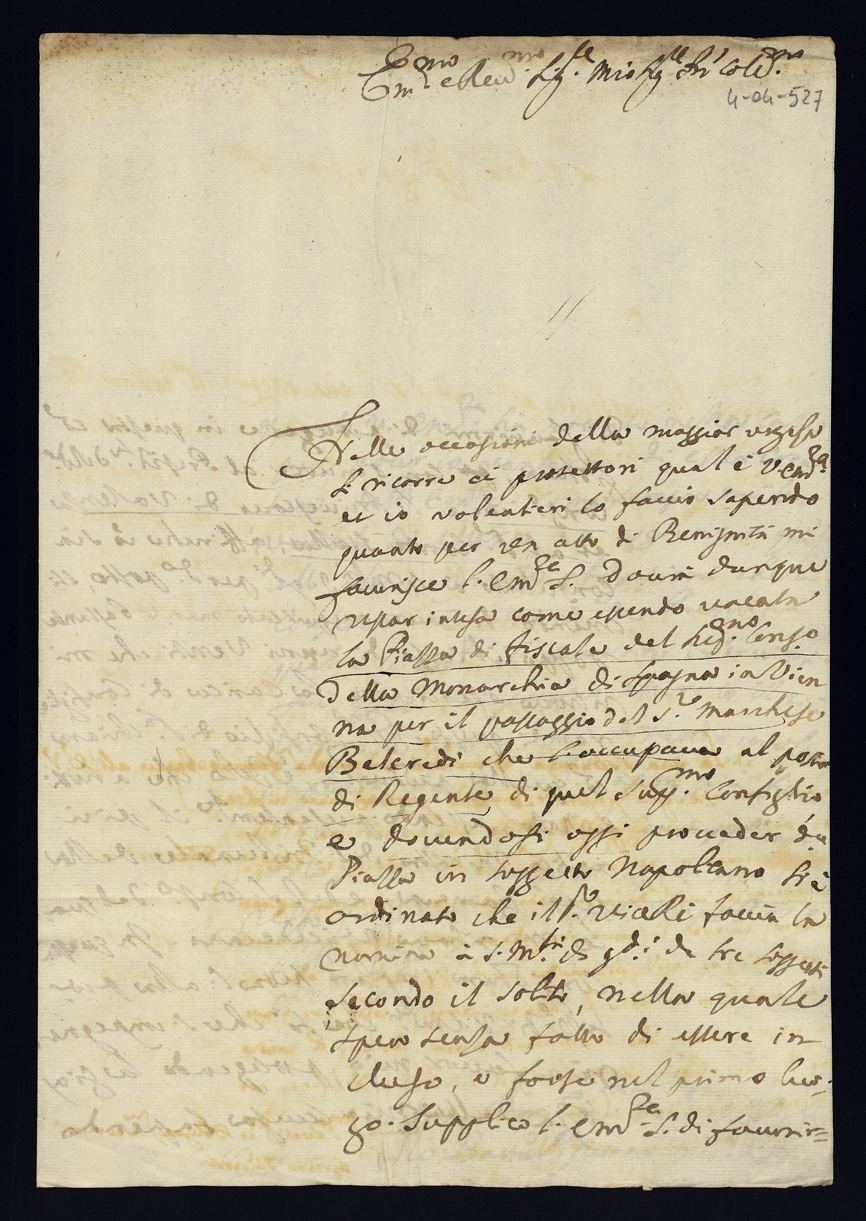 Em.mo e Rev.mo Sig.re mio Sig.re Prõn Colẽn.mo
4-04-527
Nelle occasioni della maggior urgenza
si ricorre ai protettori qual'è V. Em.za
et io volentieri lo faccio sapendo
quanto per un atto di Benignità mi
favorisce l'Em.za S. Dovrà dunque
restar intesa come essendo vacata
la Piazza di fiscale del Reg.no Conso
della Monarchia di Spagna in Vien
na per il passaggio del S.r Marchese
Belcredi che l'occupava al posto
di Regente di quel Sup.mo Consiglio
e dovendosi oggi proveder da
Piazza in soggetto Napolitano si è
ordinato che il S.r ViceRè faccia la
nomina à S. M.tà di g.di de tre soggetti
secondo il solito, nella quale
spero senza fallo di essere in
cluso, e forse nel primo luo-
go. Supplico l'Em.za S. di favorir=